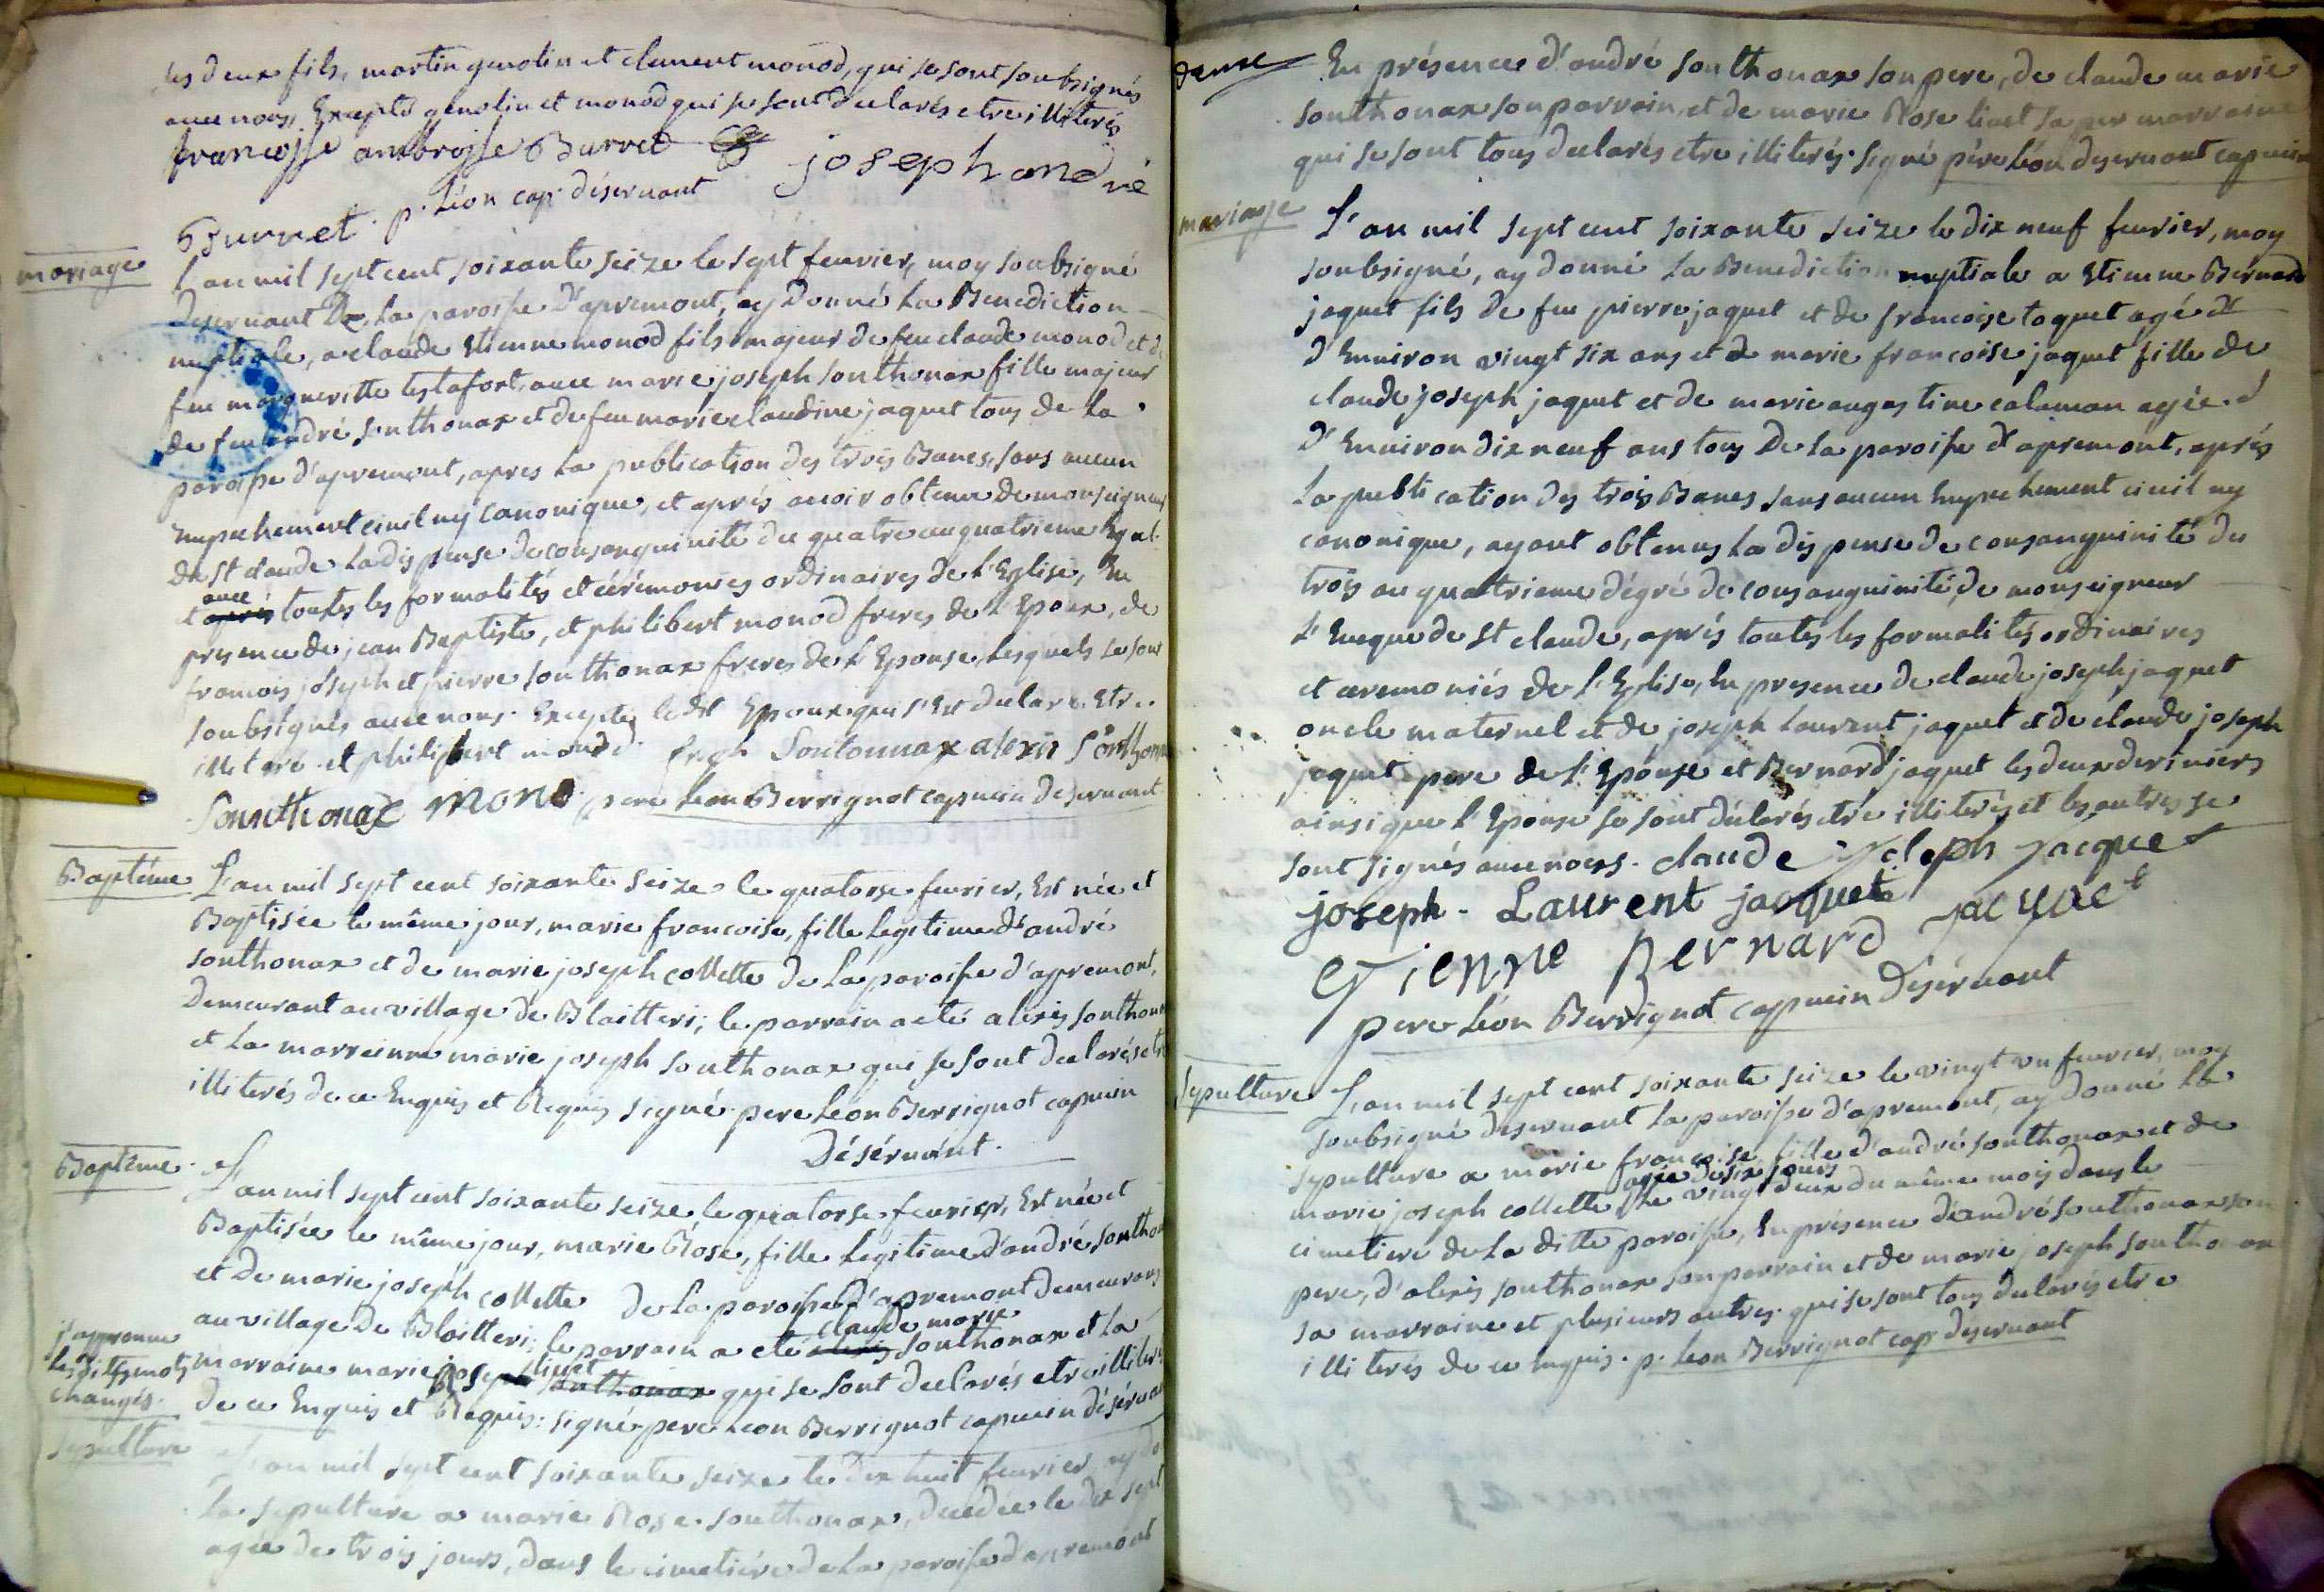 ses deux fils, martin genolin et clement monod, qui se sont soubsignés
avec nous, Exeptés genolin et monod qui se sont declarés etre illiterés
francoisse ambroisse Burret josephandré
Burret. p. Léon cap. désservant
mariage
L'an mil sept cent soixante seize le sept fevrier, moy soubsigné
deservant De la paroisse d'apremont, ay donné la Benediction
nuptiale, a claude Etienne monod fils majeur de feu claude monod et de
feu margueritte testafort, avec marie joseph southonax fille majeur
de feu andré southonax et de feu marie claudine jaquet tous de la
paroisse d'apremont, apres la publication des trois Banes, sans aucun
Empechement civil ny canonique, et aprés avoir obtenu de monseigneur
De St claude la dispense de consanguinité du quatre au quatrieme
avec
et aprés toutes les formalités et cérémonies ordinaires de l'Eglise, En
presence de jean Baptiste, et philibert monod freres de l'Epoux, de
francois joseph et pierre southonax freres de l'Epouse, lesquels se sont
soubsignés avec nous. Exeptés ledt Epoux qui s'Est declaré Etre
illiteré et philibert monod. Soutonnax alexis
Sounthonax Mono pere Leon Berrignot capucin deservant
Baptême
L'an mil sept cent soixante seize le quatorse fevrier, Est née et
Baptisée le même jour, marie francoise, fille legitime d'andré
southonax et de marie joseph collette de la paroisse d'apremont,
Demeurant au village de Blaitteri; le parrain a eté alexis southonax
et la marreinne marie joseph southonax qui se sont declarés etre
illiterés de ce Enquis et Requis signé pere Léon Berrignot capucin
Désérvant.
Baptême.
L'an mil sept cent soixante seize le quatorse fevrier, Est née et
Baptisée le même jour, marie Rose, fille legitime d'andré southonax
et de marie joseph collette de la paroisse d'apremont demeurans
claude marie
au village de Blaitteri; le parrain a eté alexis southonax et la
j'approuve
les dits mots
changés.
linet
marraine marie Rose southonax qui se sont declarés etre illiterés
de ce Enquis et Requis: signé pere Leon Berrignot capucin désérvant
sepulture
L'an mil sept cent soixante seize le dix huit fevrier ay do
la sepulture a marie Rose southonax, decedée le dix sept
agée de trois jours, dans le cimetiére de la paroisse d'apremont
En présence d'andré southonax son pere, de claude marie
southonax son parrain, et de marie Rose linet sa marraine
qui se sont tous declarés etre illiterés. signé pére Léon deservant capucin
mariage
L'an mil sept cent soixante seize le dix neuf fevrier, moy
soubsigné, ay donné la Benediction nuptiale a Etienne Bernard
jaquet fils de feu pierre jaquet et de francoise toquet agé d
d'Environ vingt six ans et a marie francoise jaquet fille de
claude joseph jaquet et de marie augastine calaman agée. d
d'Environ dix neuf ans tous De la paroisse d'apremont, aprés
la publication des trois Banes sans aucun Empechement civil ny
canonique, ayant obtenus la dispense de consanguinité du
trois au quatrieme dégré de consanguinité, de monseigneur
l'Eveque de St claude, aprés toutes les formalités ordinaires
et ceremoniés de l'Eglise, En presence de claude joseph jaquet
oncle maternel et de joseph Laurent jaquet et de claude joseph
jaquet pere de l'Epouse et Bernard jaquet les deux deriniers
ainsi que l'Epouse se sont déclarés etre illiterés et les autres se
sont signés avec nous. claude joseph jacquet
joseph. Laurent jacquet
eTienne Bernard jacquet
pere Léon Berrignot capucin Désérvant
Sepulture
L'an mil sept cent soixante seize le vingt un fevrier, moy
soubsigné deservant la paroisse d'apremont, ay donné la
sepulture a marie francoise fille d'andré southonax et de
agée de six jours
marie joseph collette le vingt deux du même mois dans le
cimetiere de la ditte paroisse, En présence d'andré southonax son
pere, d'alexis southonax son parrain et de marie joseph southonax
sa marraine et plusieurs autres qui se sont tous declarés etre
illiterés de ce Enquis. p. Leon Berrignot cap. deservant